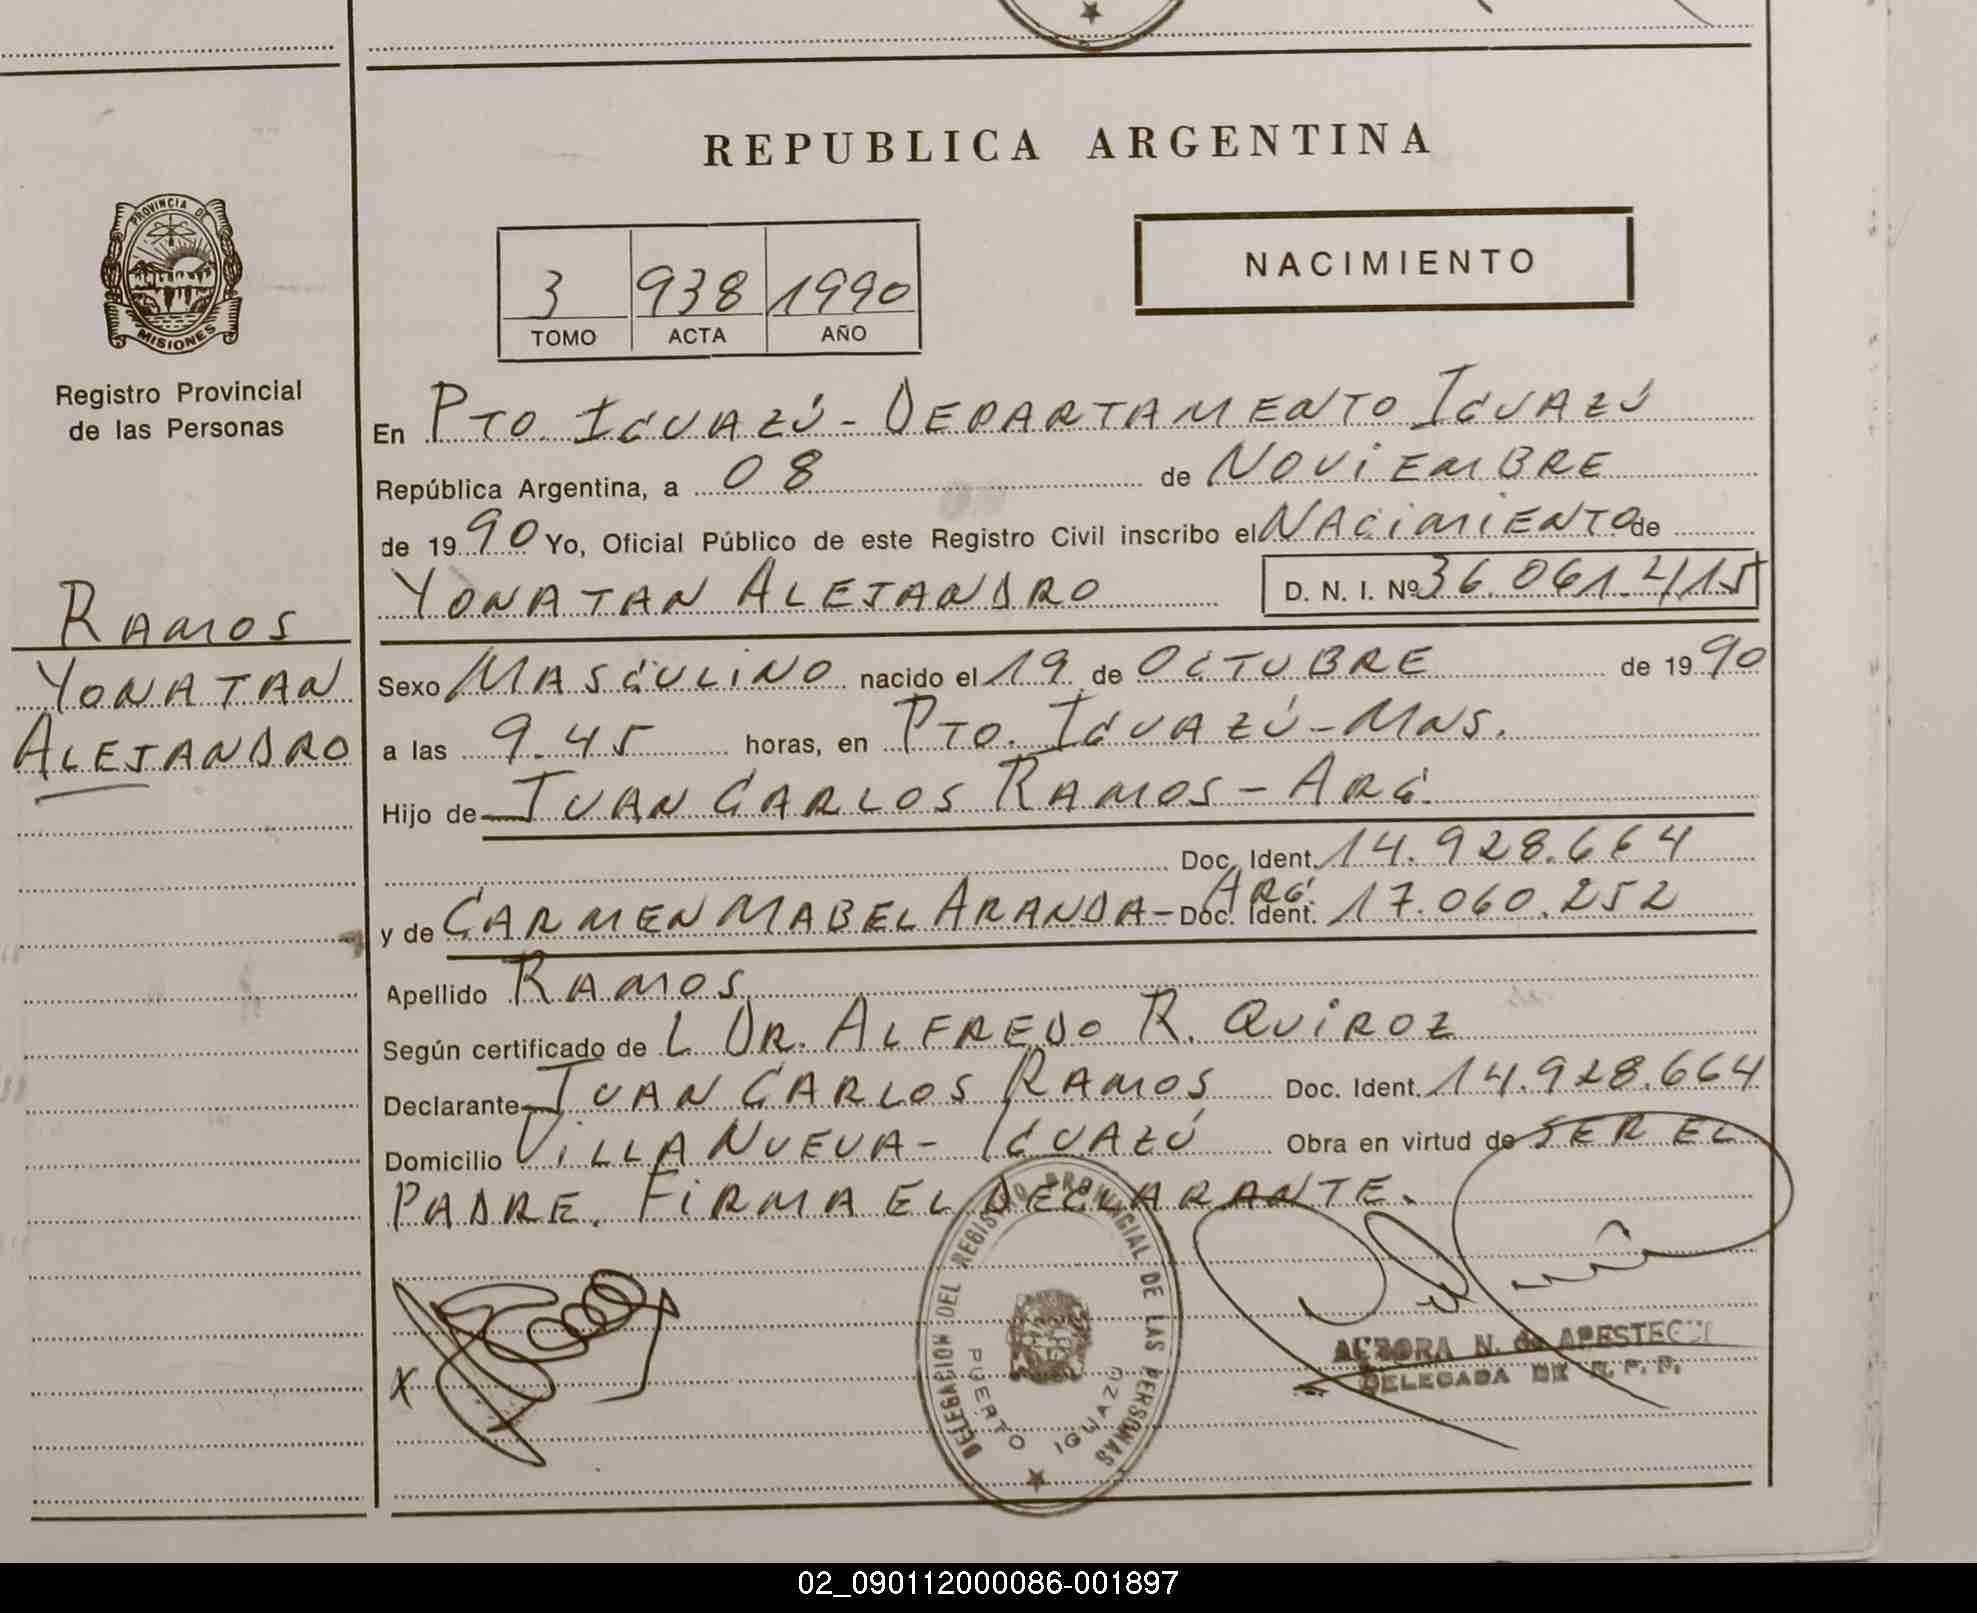 REPUBLICA ARGENTINA
PROVINCIA DE
MISIONES
Registro Provincial
de las Personas
RAMOS
YONATAN
ALEJANDRO
3 938 1990
TOMO ACTA AÑO
NACIMIENTO
En PTO. IGUAZÚ - DEPARTAMENTO IGUAZÚ
República Argentina, a 08 de NOVIEMBRE
de 1990 Yo, Oficial Público de este Registro Civil inscribo el NACIMIENTO de
YONATAN ALEJANDRO D. N. I. Nº 36.061.415
Sexo MASCULINO nacido el 19 de OCTUBRE de 1990
a las 9.45 horas, en PTO. IGUAZÚ - MNS.
Hijo de JUAN CARLOS RAMOS - ARG.
Doc. Ident. 14.928.664
y de CARMEN MABEL ARANDA - ARG. Doc. Ident. 17.060.252
Apellido RAMOS
Según certificado de L DR. ALFREDO R. QUIROZ
Declarante JUAN CARLOS RAMOS Doc. Ident. 14.928.664
Domicilio VILLA NUEVA - IGUAZÚ Obra en virtud de SER EL
PADRE. FIRMA EL DECLARANTE.
X
DELEGACION DEL REGISTRO PROVINCIAL DE LAS PERSONAS
PUERTO IGUAZU
AURORA N. de APESTEGUI
DELEGADA DE R. P. P.
02_090112000086-001897